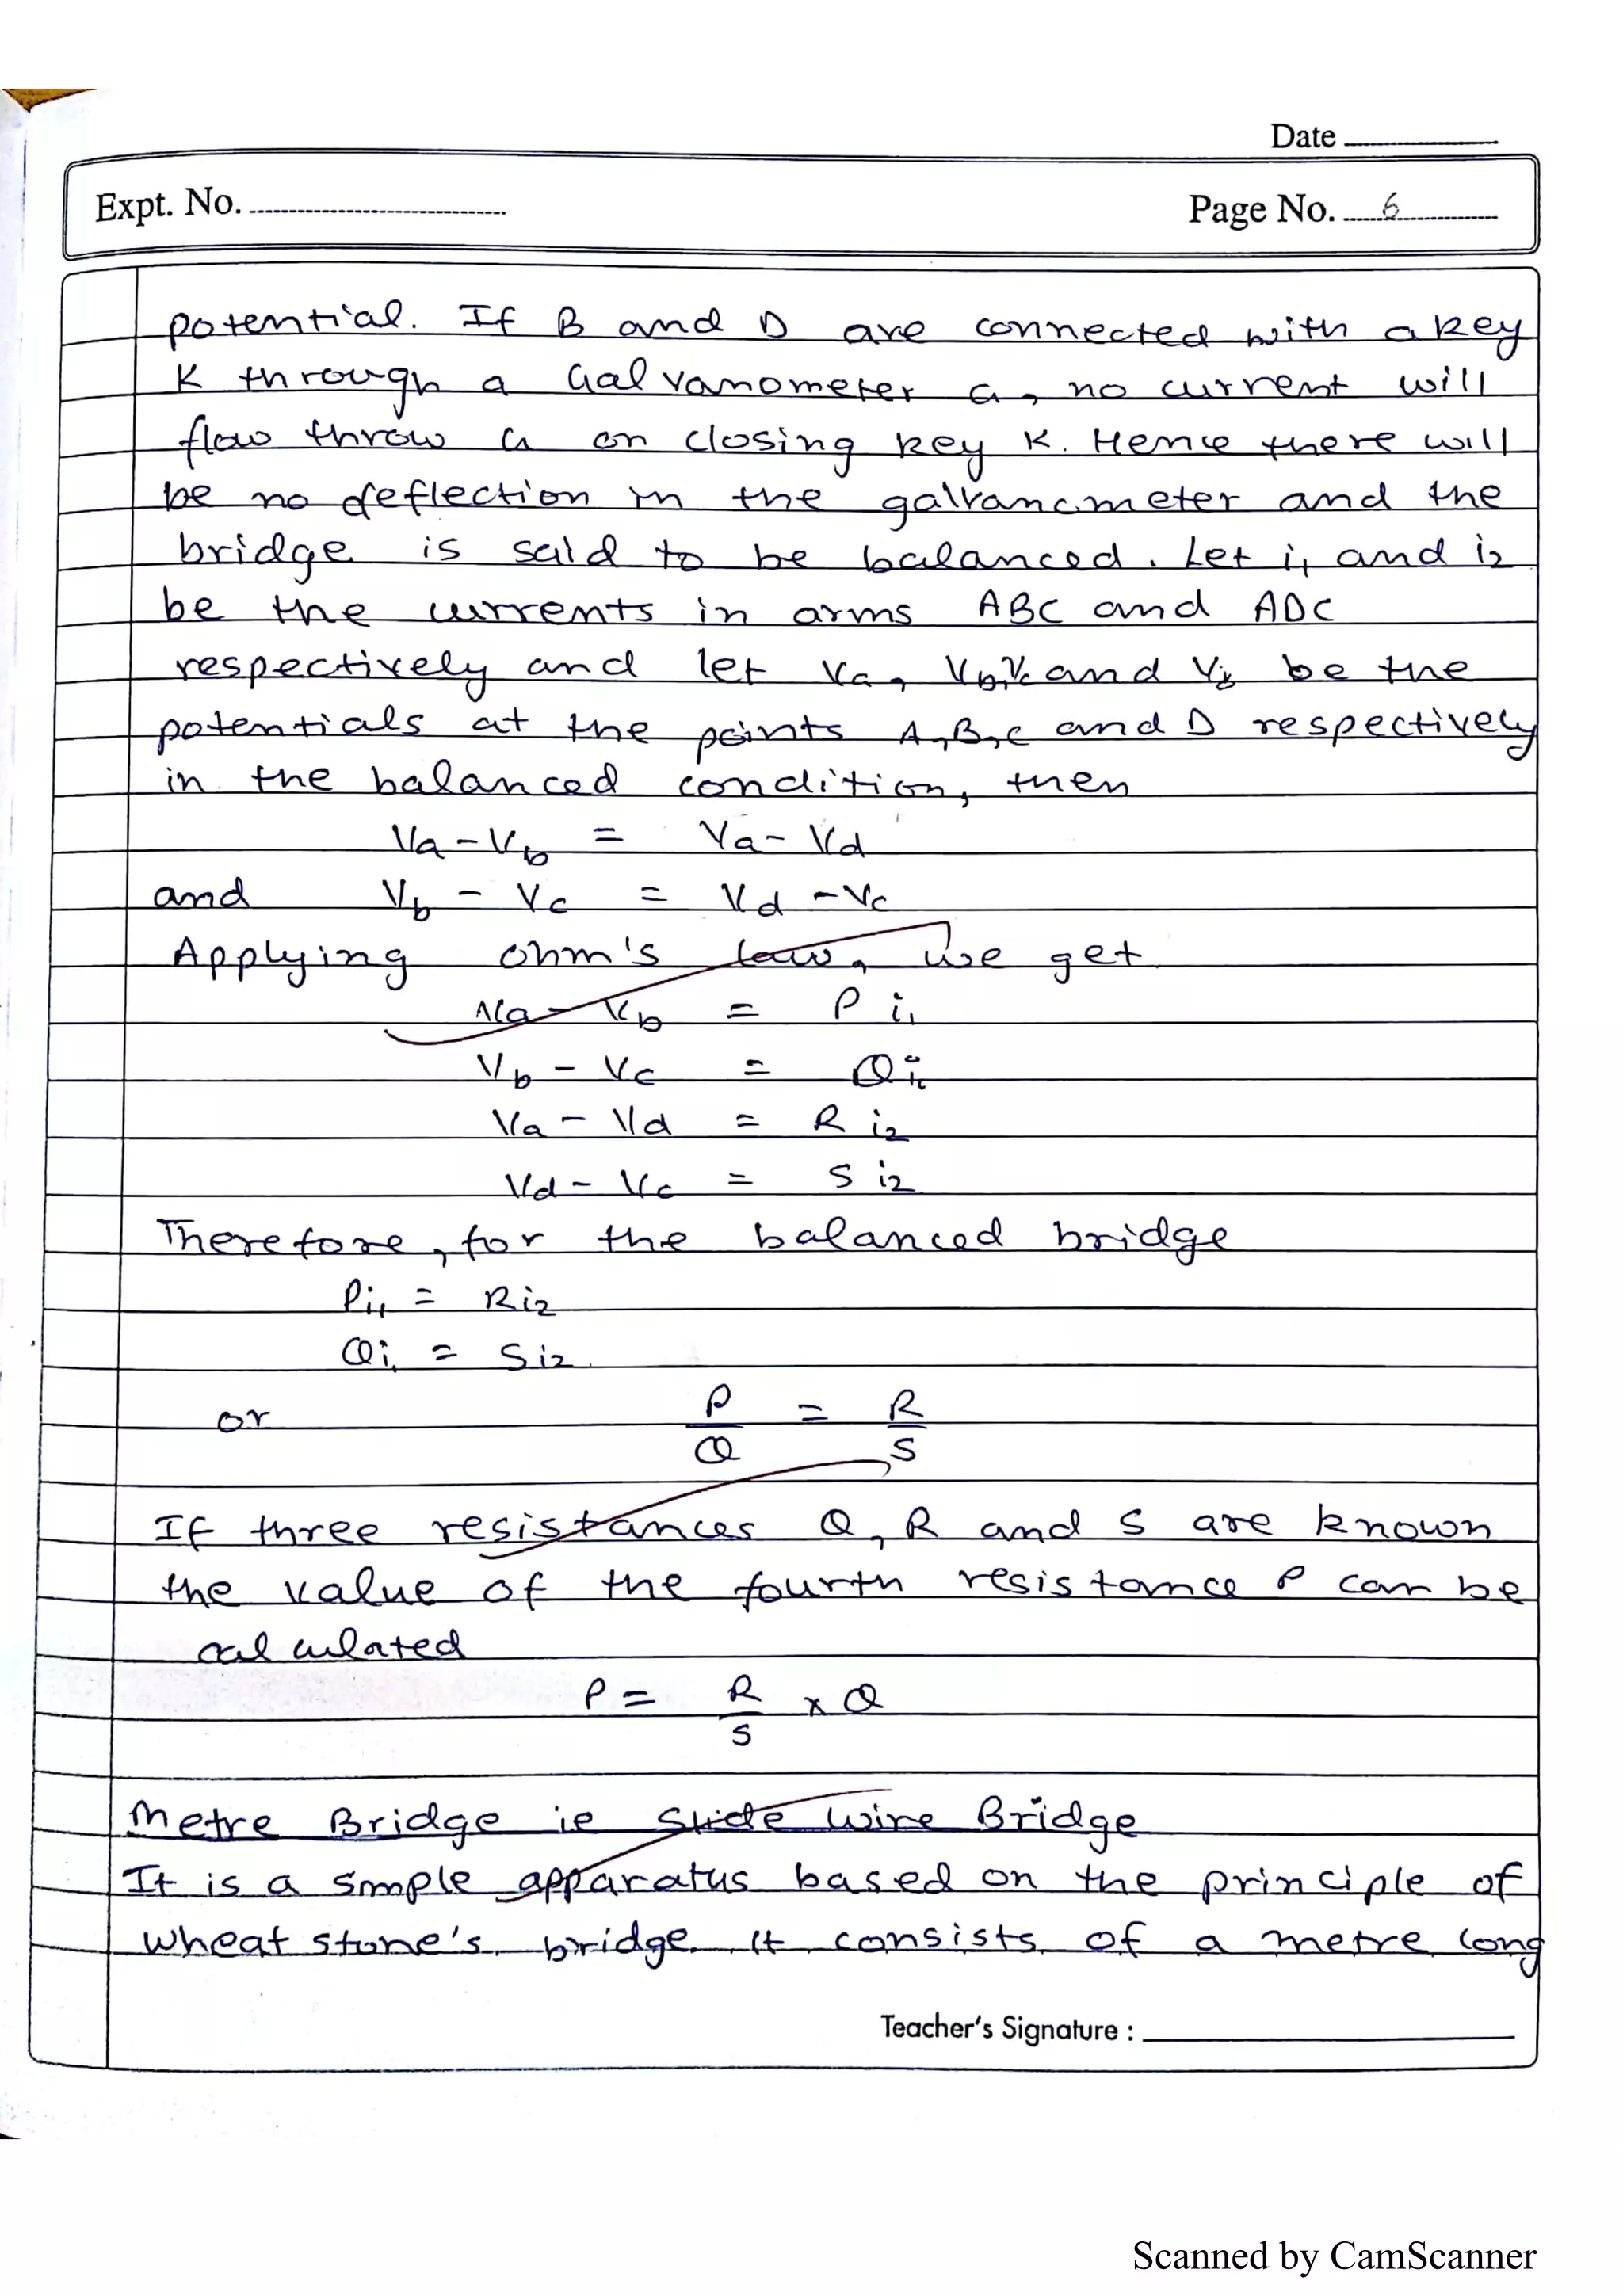 Date
Expt. No.
Page No. 6
potential. If B and D are connected with a key
K through a Galvanometer G, no current will
flow throw G on closing key K. Hence there will
be no deflection in the galvanometer and the
bridge is said to be balanced. Let i1 and i2
be the currents in arms ABC and ADC
respectively and let Va, Vb, Vc and Vd be the
potentials at the points A, B, C and D respectively
in the balanced condition, then
Va - Vb = Va - Vd
and Vb - Vc = Vd - Vc
Applying ohm's law, we get
Va - Vb = P i1
Vb - Vc = Q i1
Va - Vd = R i2
Vd - Vc = S i2
Therefore, for the balanced bridge
Pi1 = Ri2
Qi1 = Si2
or P/Q = R/S
If three resistances Q, R and S are known
the value of the fourth resistance P can be
calculated
P = R/S x Q
Metre Bridge ie Slide wire Bridge
It is a smple apparatus based on the principle of
wheat stone's bridge. It consists of a metre long
Teacher's Signature :
Scanned by CamScanner